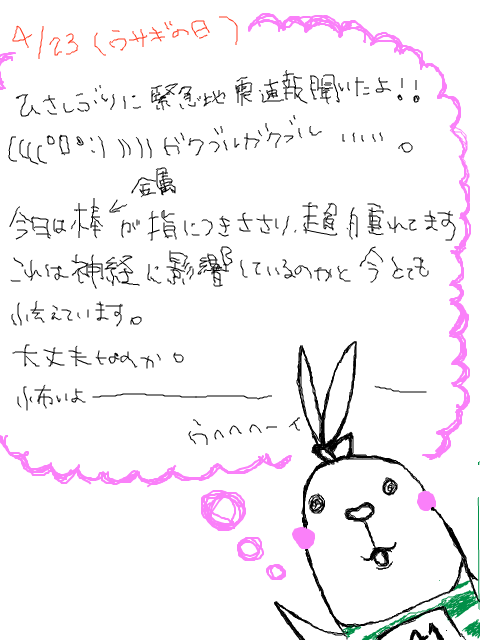 4/23(ウサギの日)
ひさしぶりに緊急地震速報聞いたよ!!
(((( ﾟДﾟ;))))ガクブルガクブル ……。
金属
今日は棒←が指につきささり、超腫れてます
これは神経に影響しているのかと今とても
怯えています。
大丈夫なのか。
怖いよ――――― ―
うへへへーイ